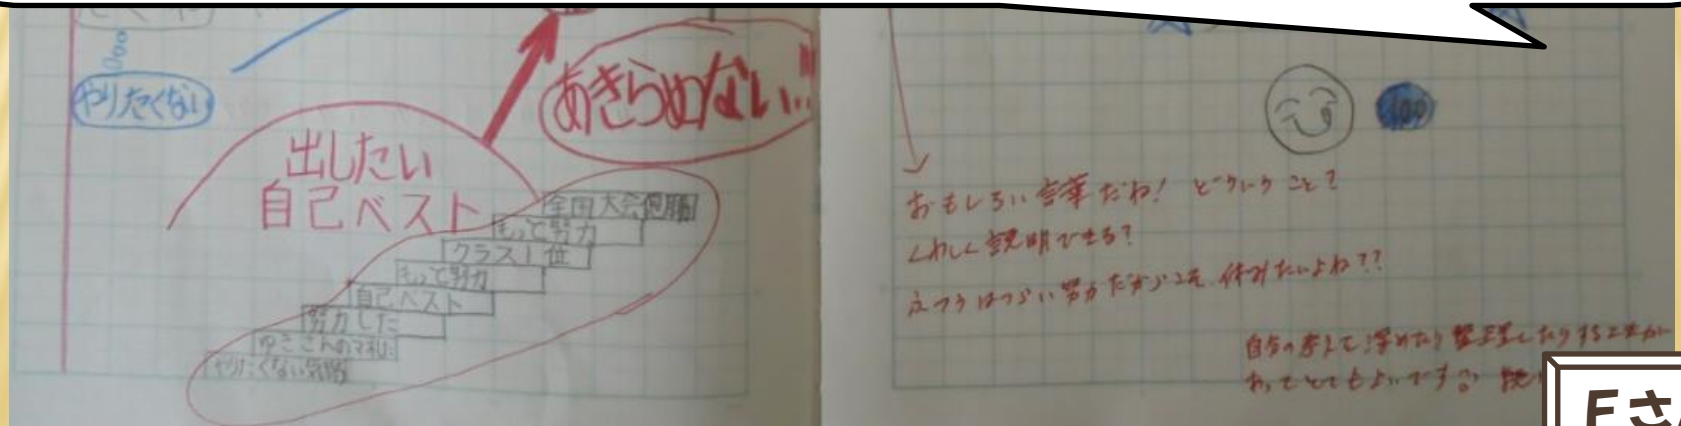 やりたくない
あきらめない!!
出したい
自己ベスト
全国大会優勝
もっと努力
クラス1位
もっと努力
自己ベスト
努力した
ゆきさんのマネ
やりたくない気持
100
おもしろい言葉だね! どういうこと?
くわしく説明できる?
ふつうはつらい努力だからこそ、休みたいよね??
自分の考えて深めたり整理したりすることが
とてもよいです
Eさ